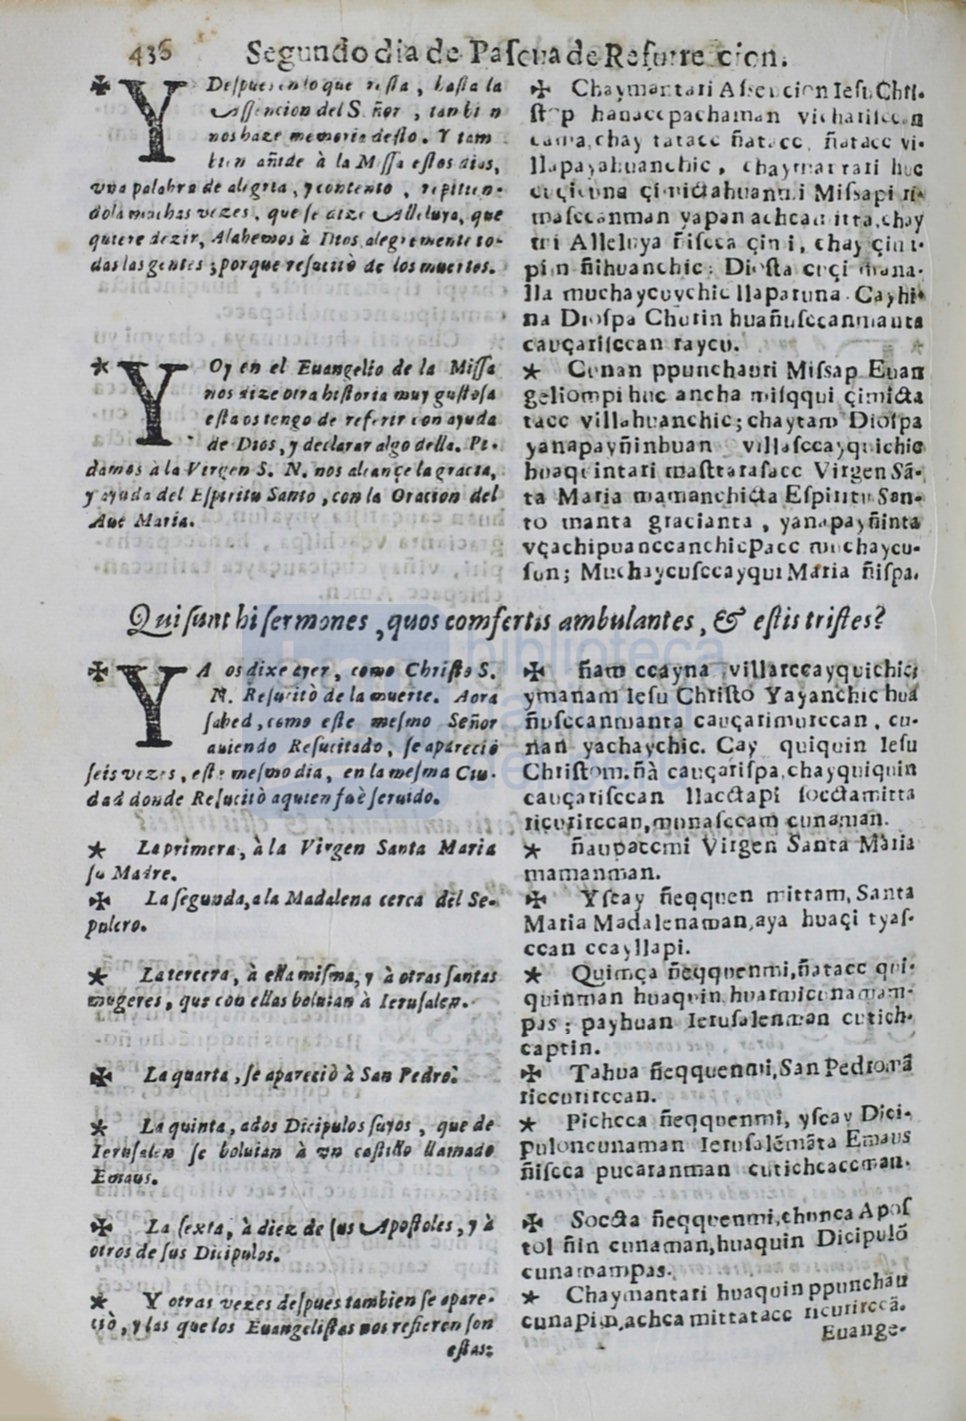 436 Segundo dia de Pascua de Resurreccion.
Y Despues en lo que resta, hasta la
Assencion del Señor, tambien
nos haze memoria desto. Y tam
bien añide à la Missa estos dias,
vna palabra de alegria, y contento, repitien-
dola muchas vezes, que se dize Alleluya, que
quiere dezir, Alabemos à Dios alegremente to-
das las gentes; porque resucitò de los muertos.
* Y Oy en el Euangelio de la Missa
nos dize otra historia muy gustosa
esta os tengo de referir con ayuda
de Dios, y declarar algo della. Pi-
damos à la Virgen S. N. nos alcançe la gracia,
y ayuda del Espiritu Santo, con la Oracion del
Aue Maria.
✠ Chaymantari Assencion Iesu Chri-
stop hanaccpachaman
cama, chay tatacc ñatacc, ñatacc vi-
llapayahuanchic, chaymantari huc
çimictahuanmi Missapi
yapan achca mitta, chay
Alleluya ñiscca çimi, chay çimi-
pim ñihuanchic: Diosta
lla muchaycuychic llaparuna. Cayhi-
na Diospa Churin huañusccanmanta
cauçarisccan raycu.
* Cunan ppunchauri Missap Euan
geliompi huc ancha misqqui çimicta
tacc villahuanchic; chaytam Diospa
yanapayñinhuan villasccayquichic
huaquintari masttarasacc Virgen Sã-
ta Maria mamanchicta Espiritu San-
to manta gracianta, yanapayñinta
vçachipuanccanchicpacc muchaycu-
sun; Muchaycusccayqui Maria ñispa.
Qui sunt hi sermones, quos comfertis ambulantes, & estis tristes?
✠ Y A os dixe ayer, como Christo S.
N. Resucitò de la muerte. Aora
sabed, como este mesmo Señor
auiendo Resucitado, se apareciò
seis vezes, este mesmo dia, en la mesma Ciu-
dad donde Resucitò aquien fuè seruido.
* La primera, à la Virgen Santa Maria
su Madre.
✠ La segunda, a la Madalena cerca del Se-
pulcro.
* La tercera, à ella misma, y à otras santas
mugeres, que con ellas boluian à Ierusalen.
✠ La quarta, se apareciò à San Pedro.
* La quinta, a dos Dicipulos suyos, que de
Ierusalen se boluian à vn castillo llamado
Emaus.
✠ La sexta, à diez de sus Apostoles, y à
otros de sus Dicipulos.
* Y otras vezes despues tambien se apare-
ciò, y las que los Euangelistas nos refieren son
estas:
✠ ñam ccayna villarccayquichic;
ymanam Iesu Christo Yayanchic hua
ñusccanmanta cauçarimurccan, cu-
nan yachaychic. Cay quiquin Iesu
Christom, ñà cauçarispa, chayquiquin
cauçarisccan llacctapi socctamitta
ricurirccan, munasccam cunaman.
* ñaupaccmi Virgen Santa Maria
mamanman.
✠ Yscay ñeqquen mittam, Santa
Maria Madalenaman, aya huaçi tyas-
ccan ccayllapi.
* Quimça ñeqquenmi, ñatacc qui-
quinman huaquin huarmicunamam-
pas; payhuan Ierusalenman cutich-
captin.
✠ Tahua ñeqquenmi, San Pedromã
riccurirccan.
* Pichcca ñeqquenmi, yscay Dici-
puloncunaman Ierusalẽmãta Emaus
ñiscca pucaranman cutichcaccman.
✠ Soccta ñeqquenmi, chunca Apos
tol ñin cunaman, huaquin Dicipulõ
cunamampas.
* Chaymantari huaquin ppunchau
cunapim, achca mittatacc ricurircca.
Euange-